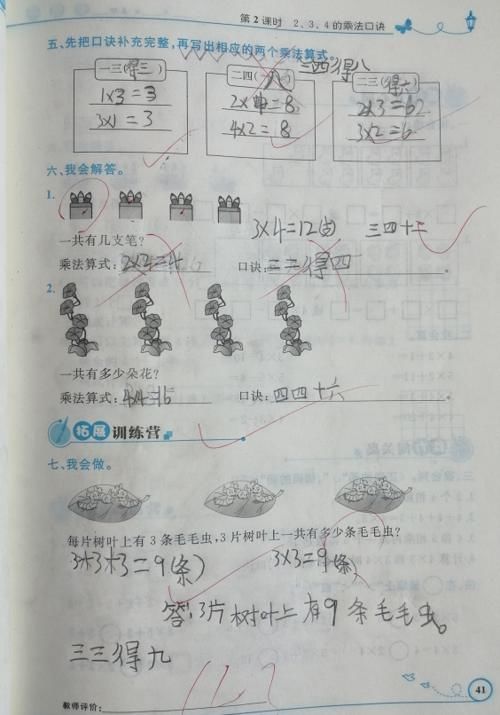 第2课时 2、3、4的乘法口诀
五、先把口诀补充完整,再写出相应的两个乘法算式。
三四得八
一三(得三) 二四( 八) 二三(得六)
1×3=3 2×4=8 2×3=6
3×1=3 4×2=8 3×2=6
六、我会解答。
1.
3×4=12(支) 三四十二
一共有几支笔?
乘法算式: 2×2=4 口诀:二二得四。
2.
一共有多少朵花?
乘法算式: 4×4=16 口诀:四四十六。
拓展训练营
七、我会做。
每片树叶上有3条毛毛虫,3片树叶上一共有多少条毛毛虫?
3+3+3=9(条) 3×3=9(条)
答:3片树叶上有9条毛毛虫。
三三得九
教师评价:
41